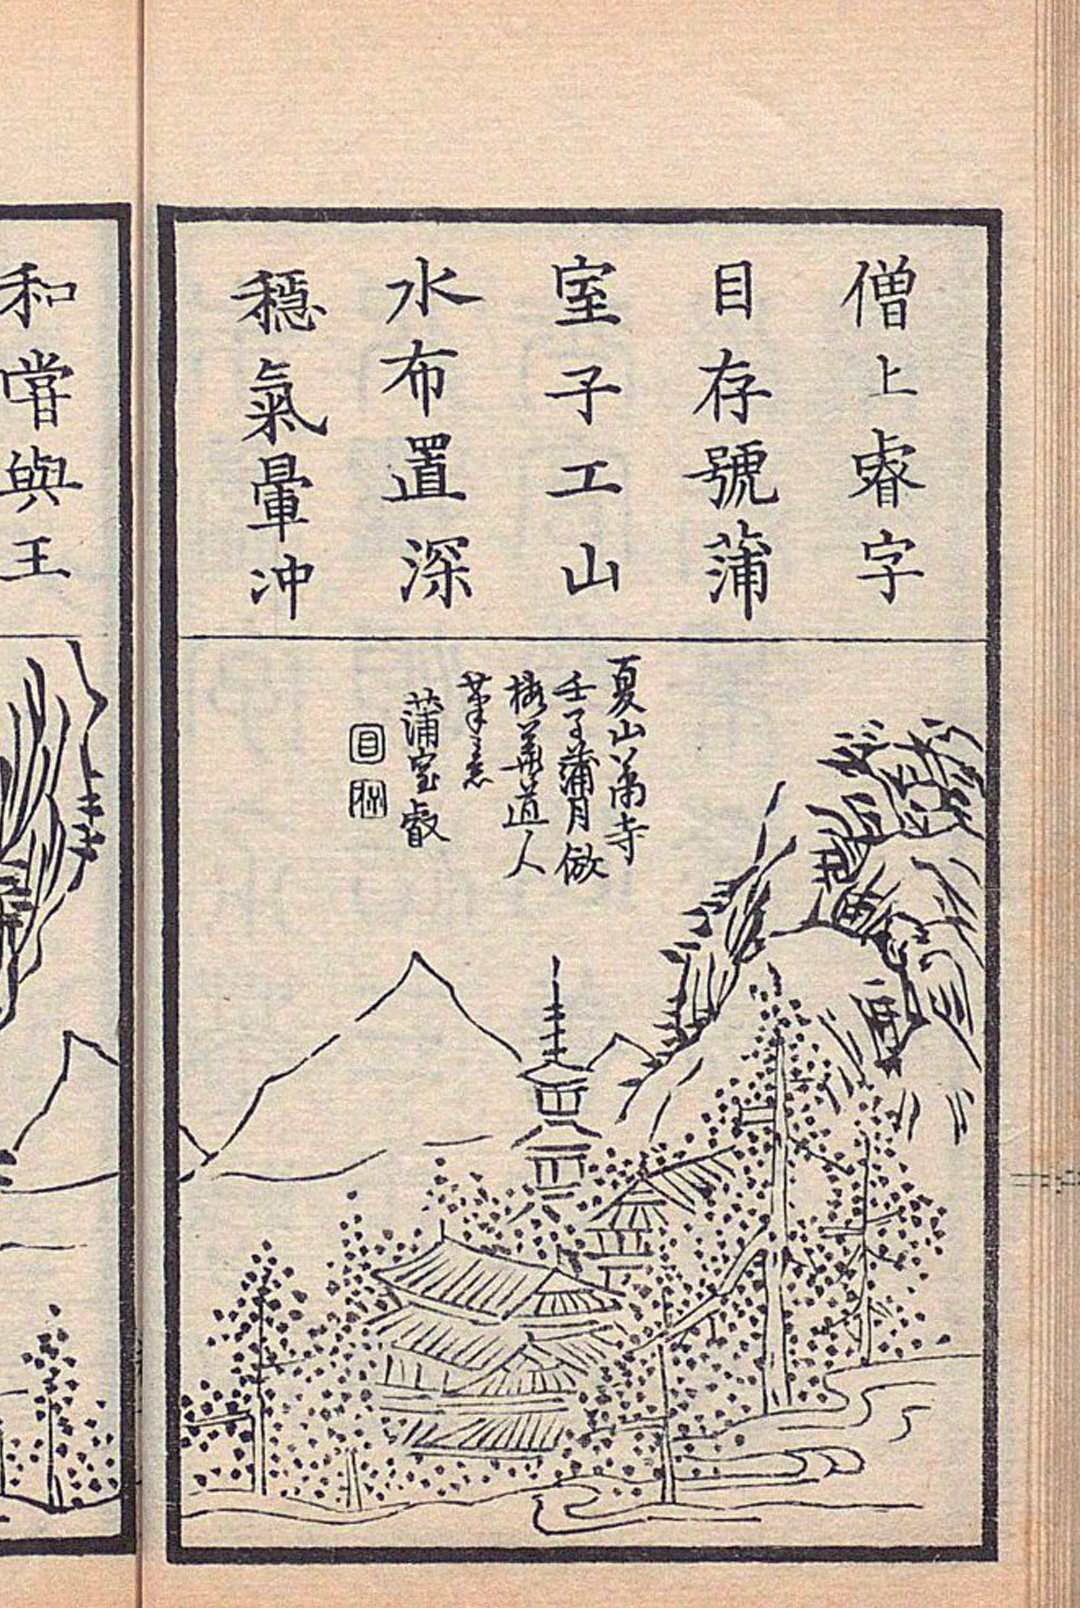 僧上睿字
目存號蒲
室子工山
水布置深
穩氣暈冲
夏山蕭寺
壬子蒲月倣
梅華道人
筆意
蒲室叡
目
和嘗與王